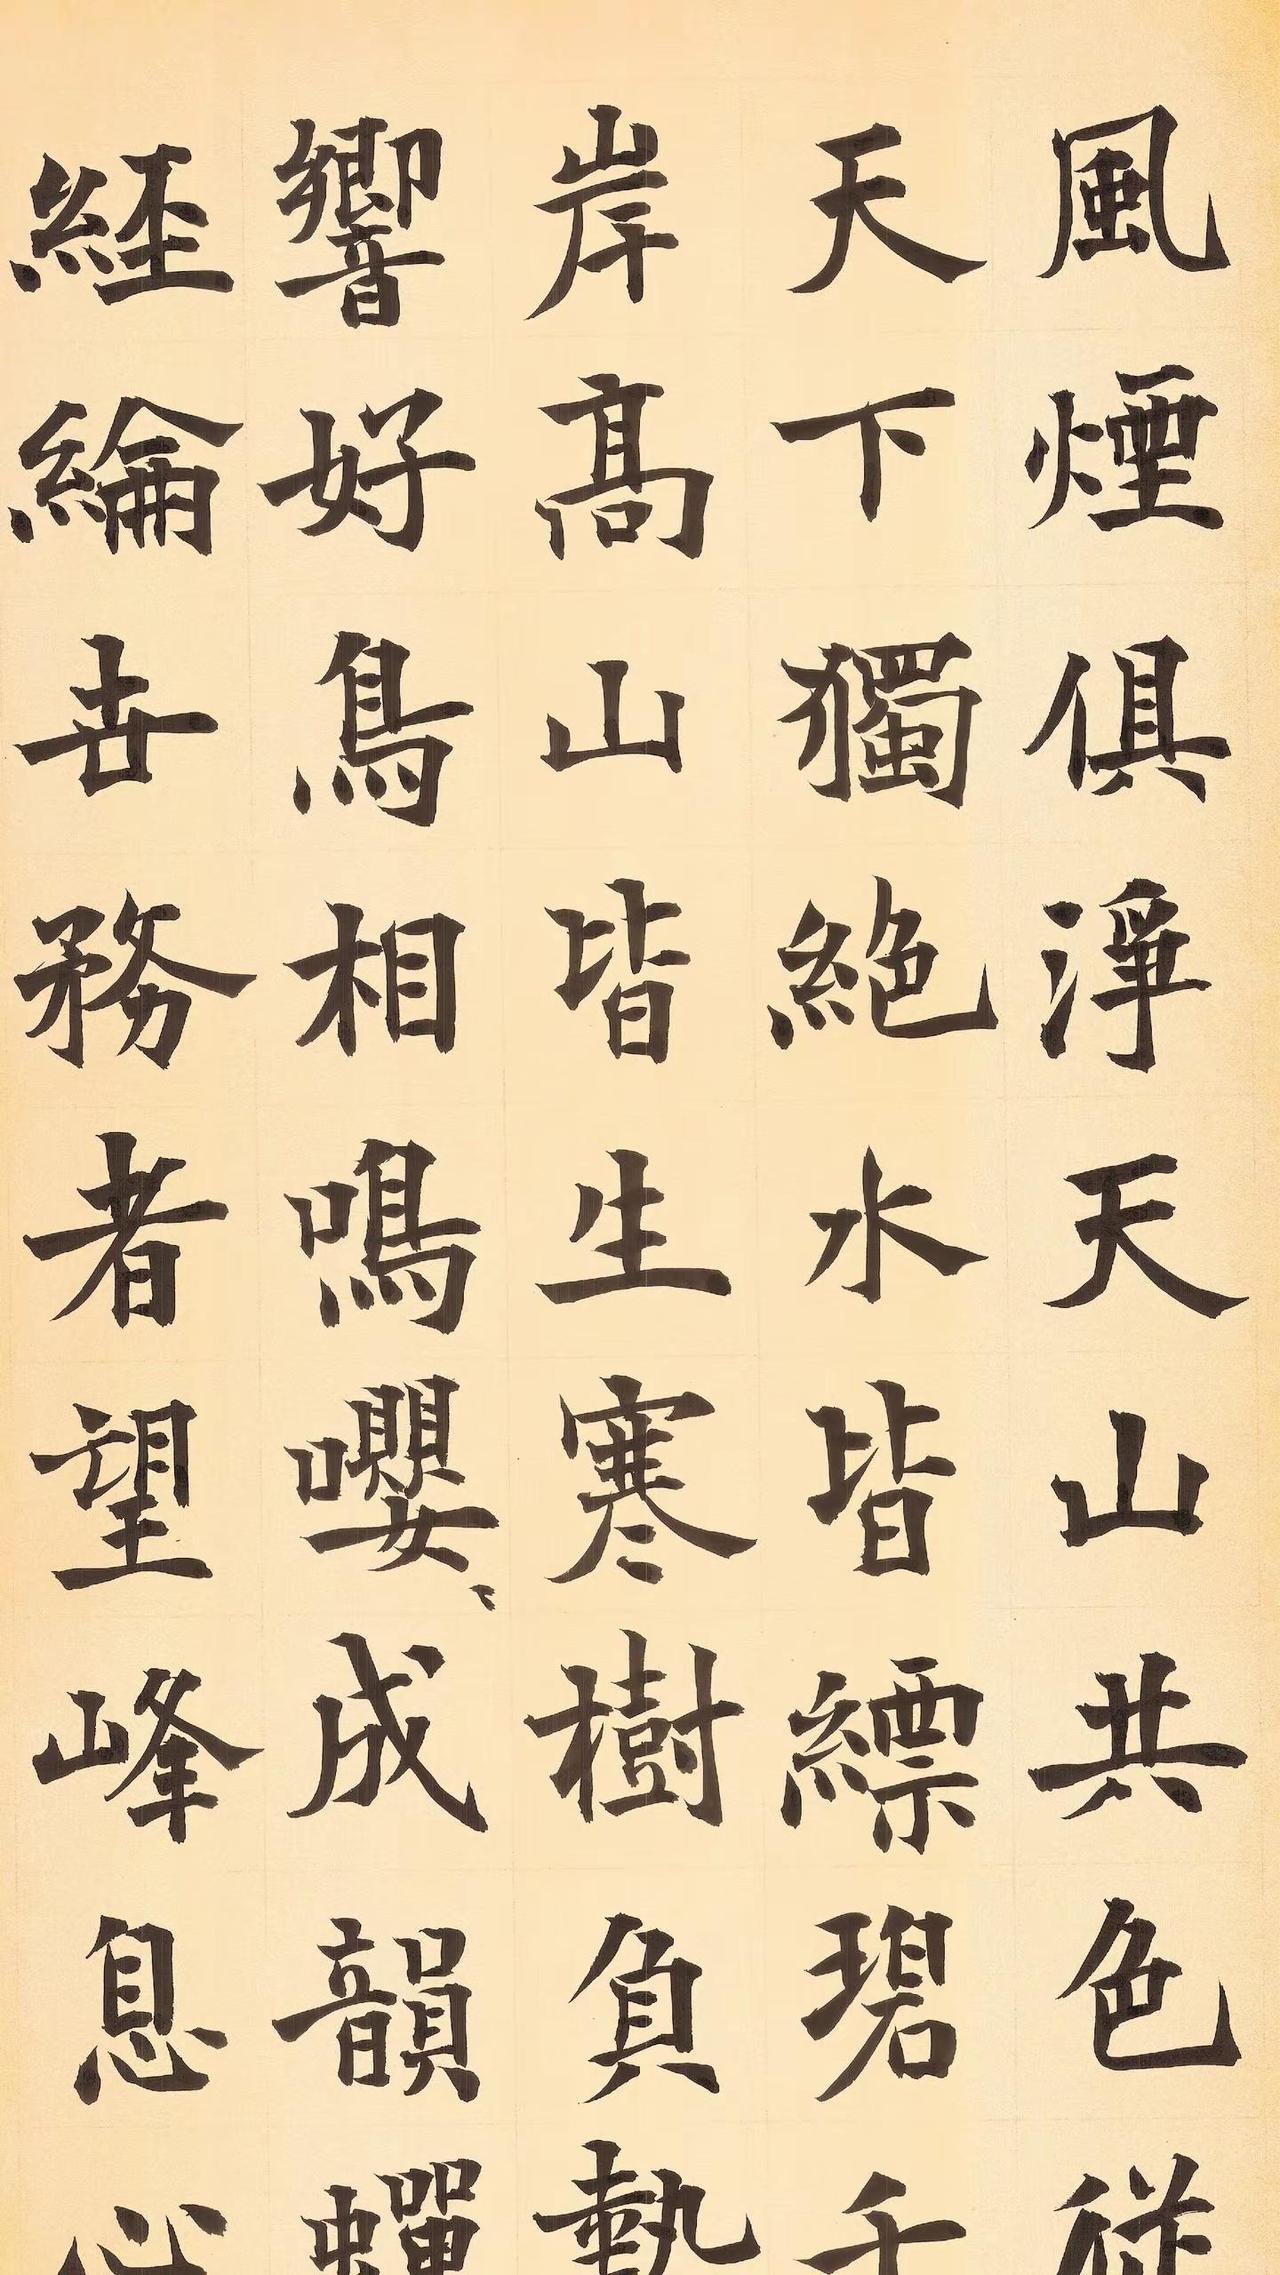 風煙俱淨天山共色從
天下獨絕水皆縹碧千
岸高山皆生寒樹負勢
響好鳥相鳴嚶々成韻蟬
經綸世務者望峰息心